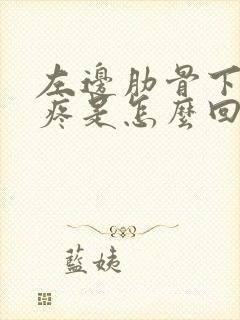 左邊肋骨下
疼是怎麼回
藍姨